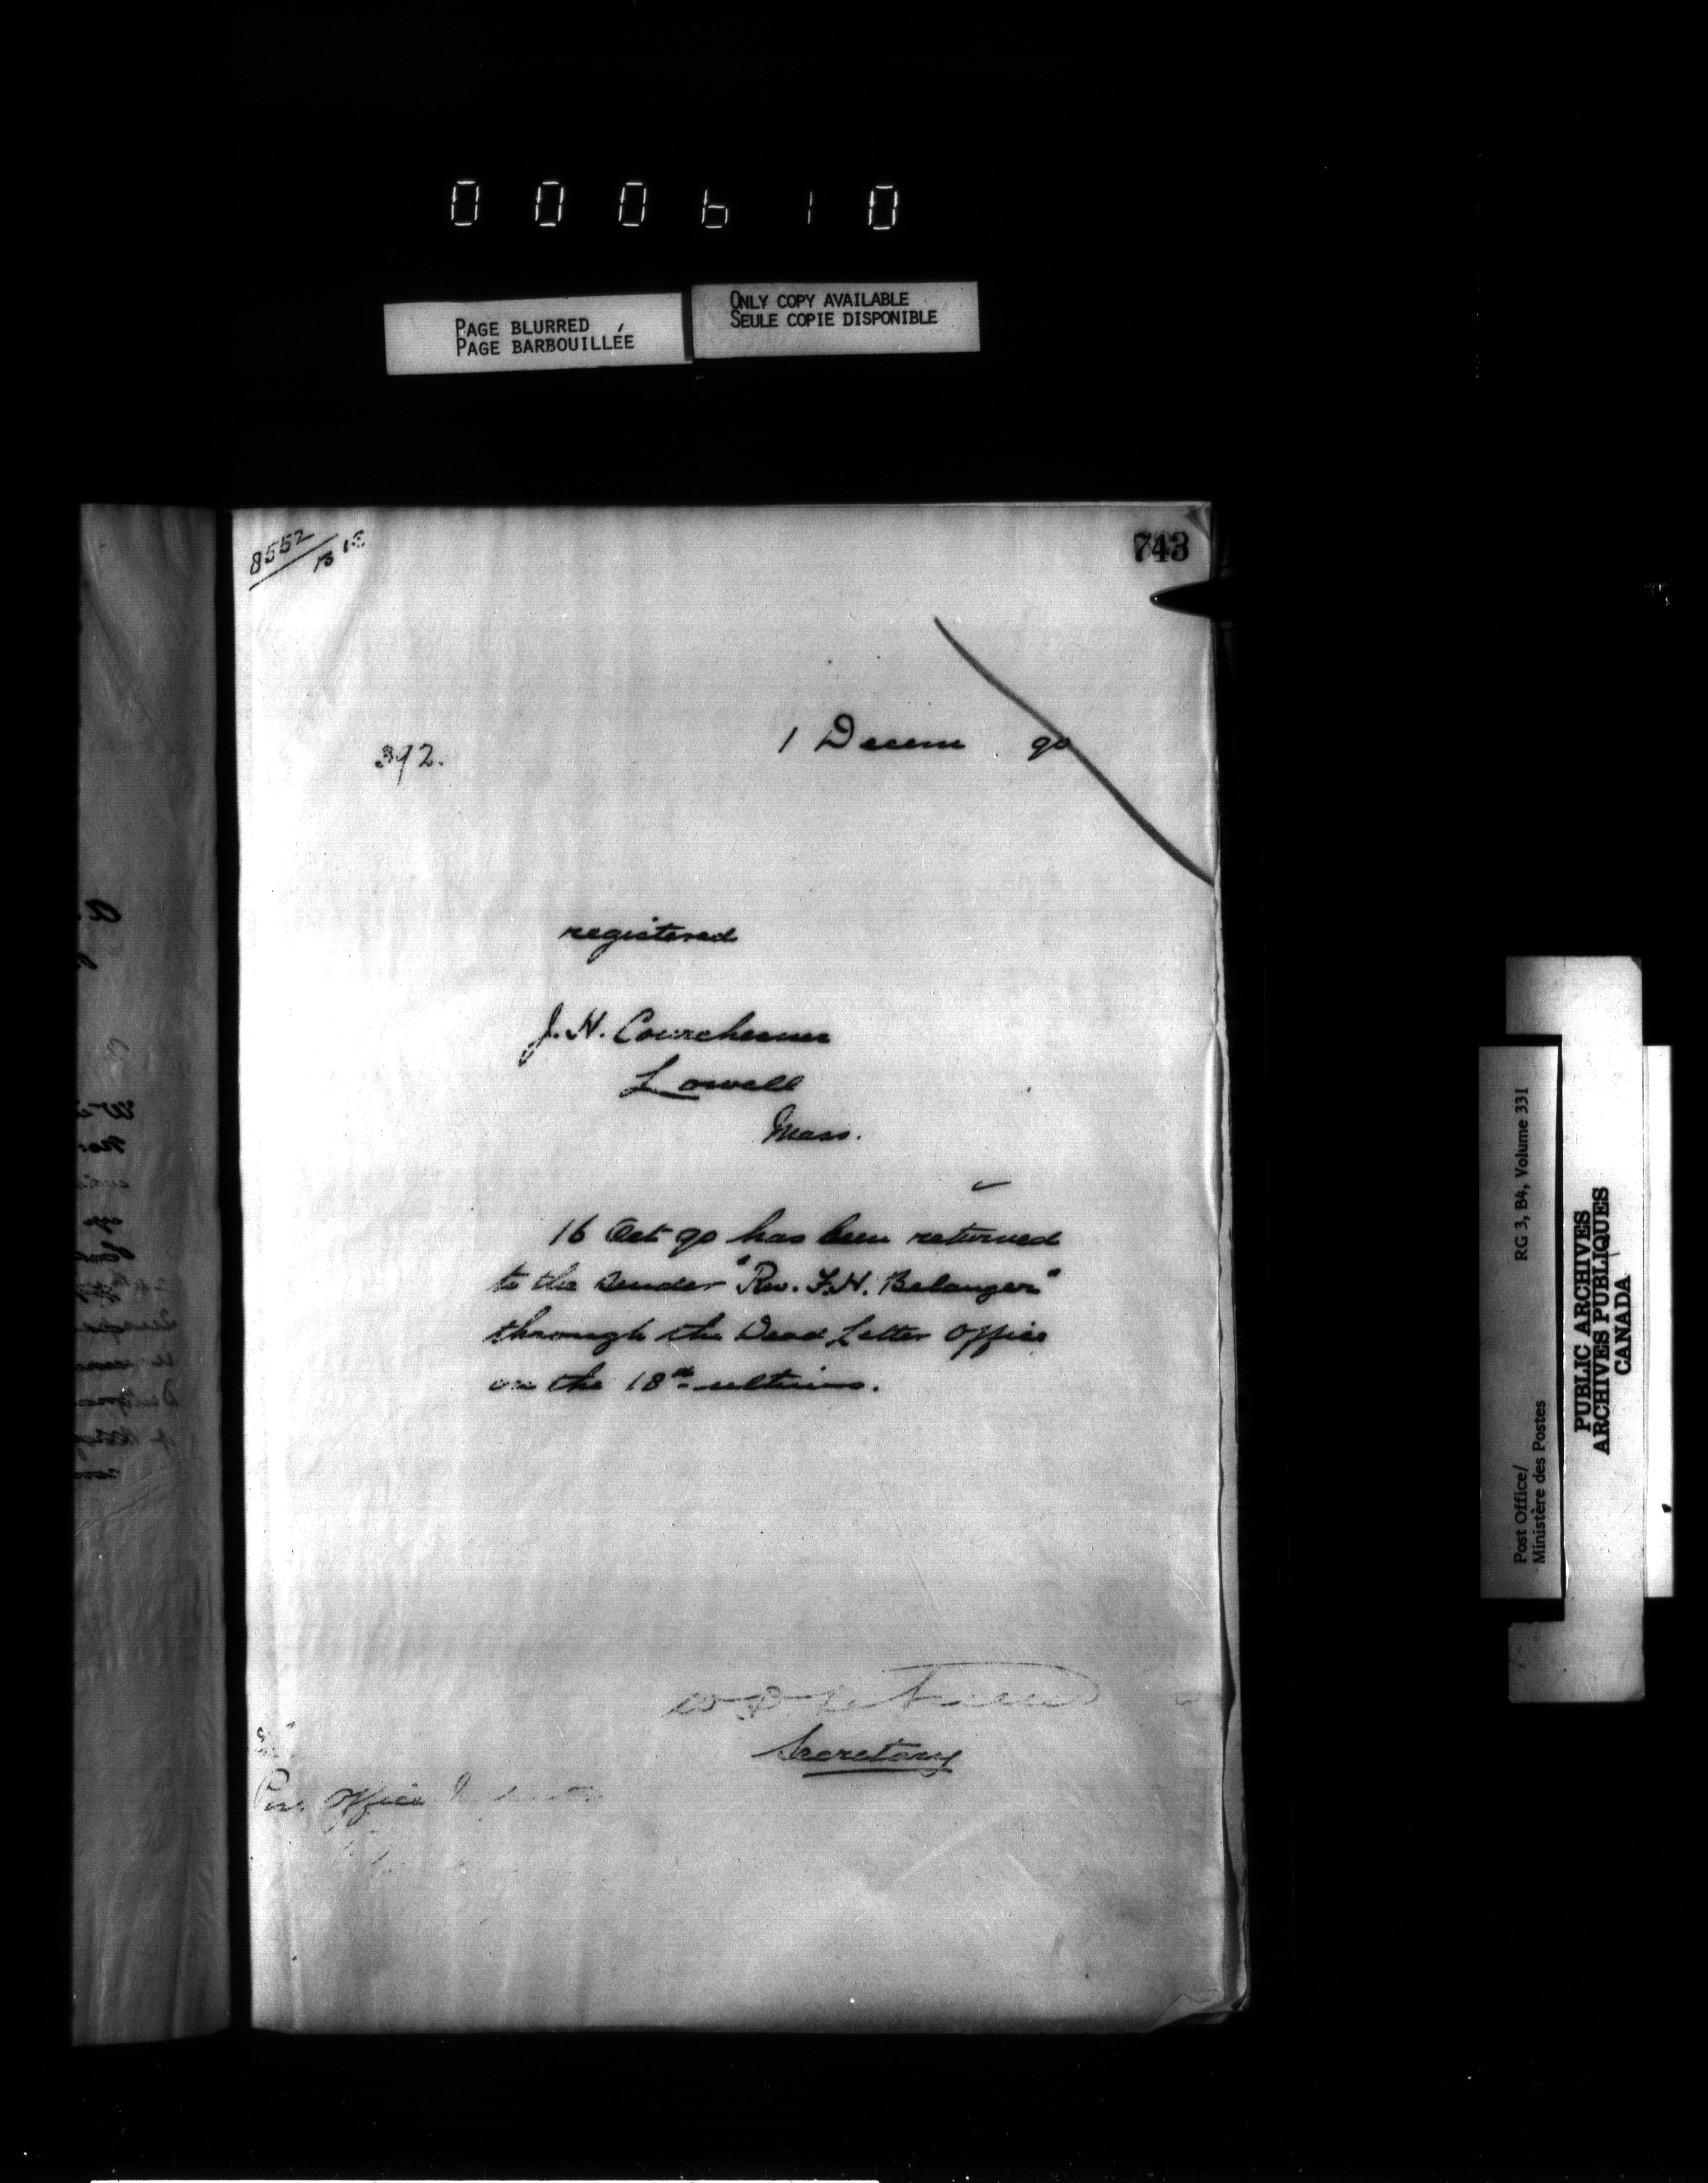 000610
PAGE BLURRED
PAGE BARBOUILLÉE
ONLY COPY AVAILABLE
SEULE COPIE DISPONIBLE
8552
743
392.
1 Decem 90
registered
J. H. Courchesne
Lowell
Mass.
16 Oct 90 has been returned
to the sender "Rev. F.H. Belanger"
through the Dead Letter Office
on the 18th ultimo.
Secretary
Office
Post Office/
Ministère des Postes
RG 3, B4, Volume 331
PUBLIC ARCHIVES
ARCHIVES PUBLIQUES
CANADA